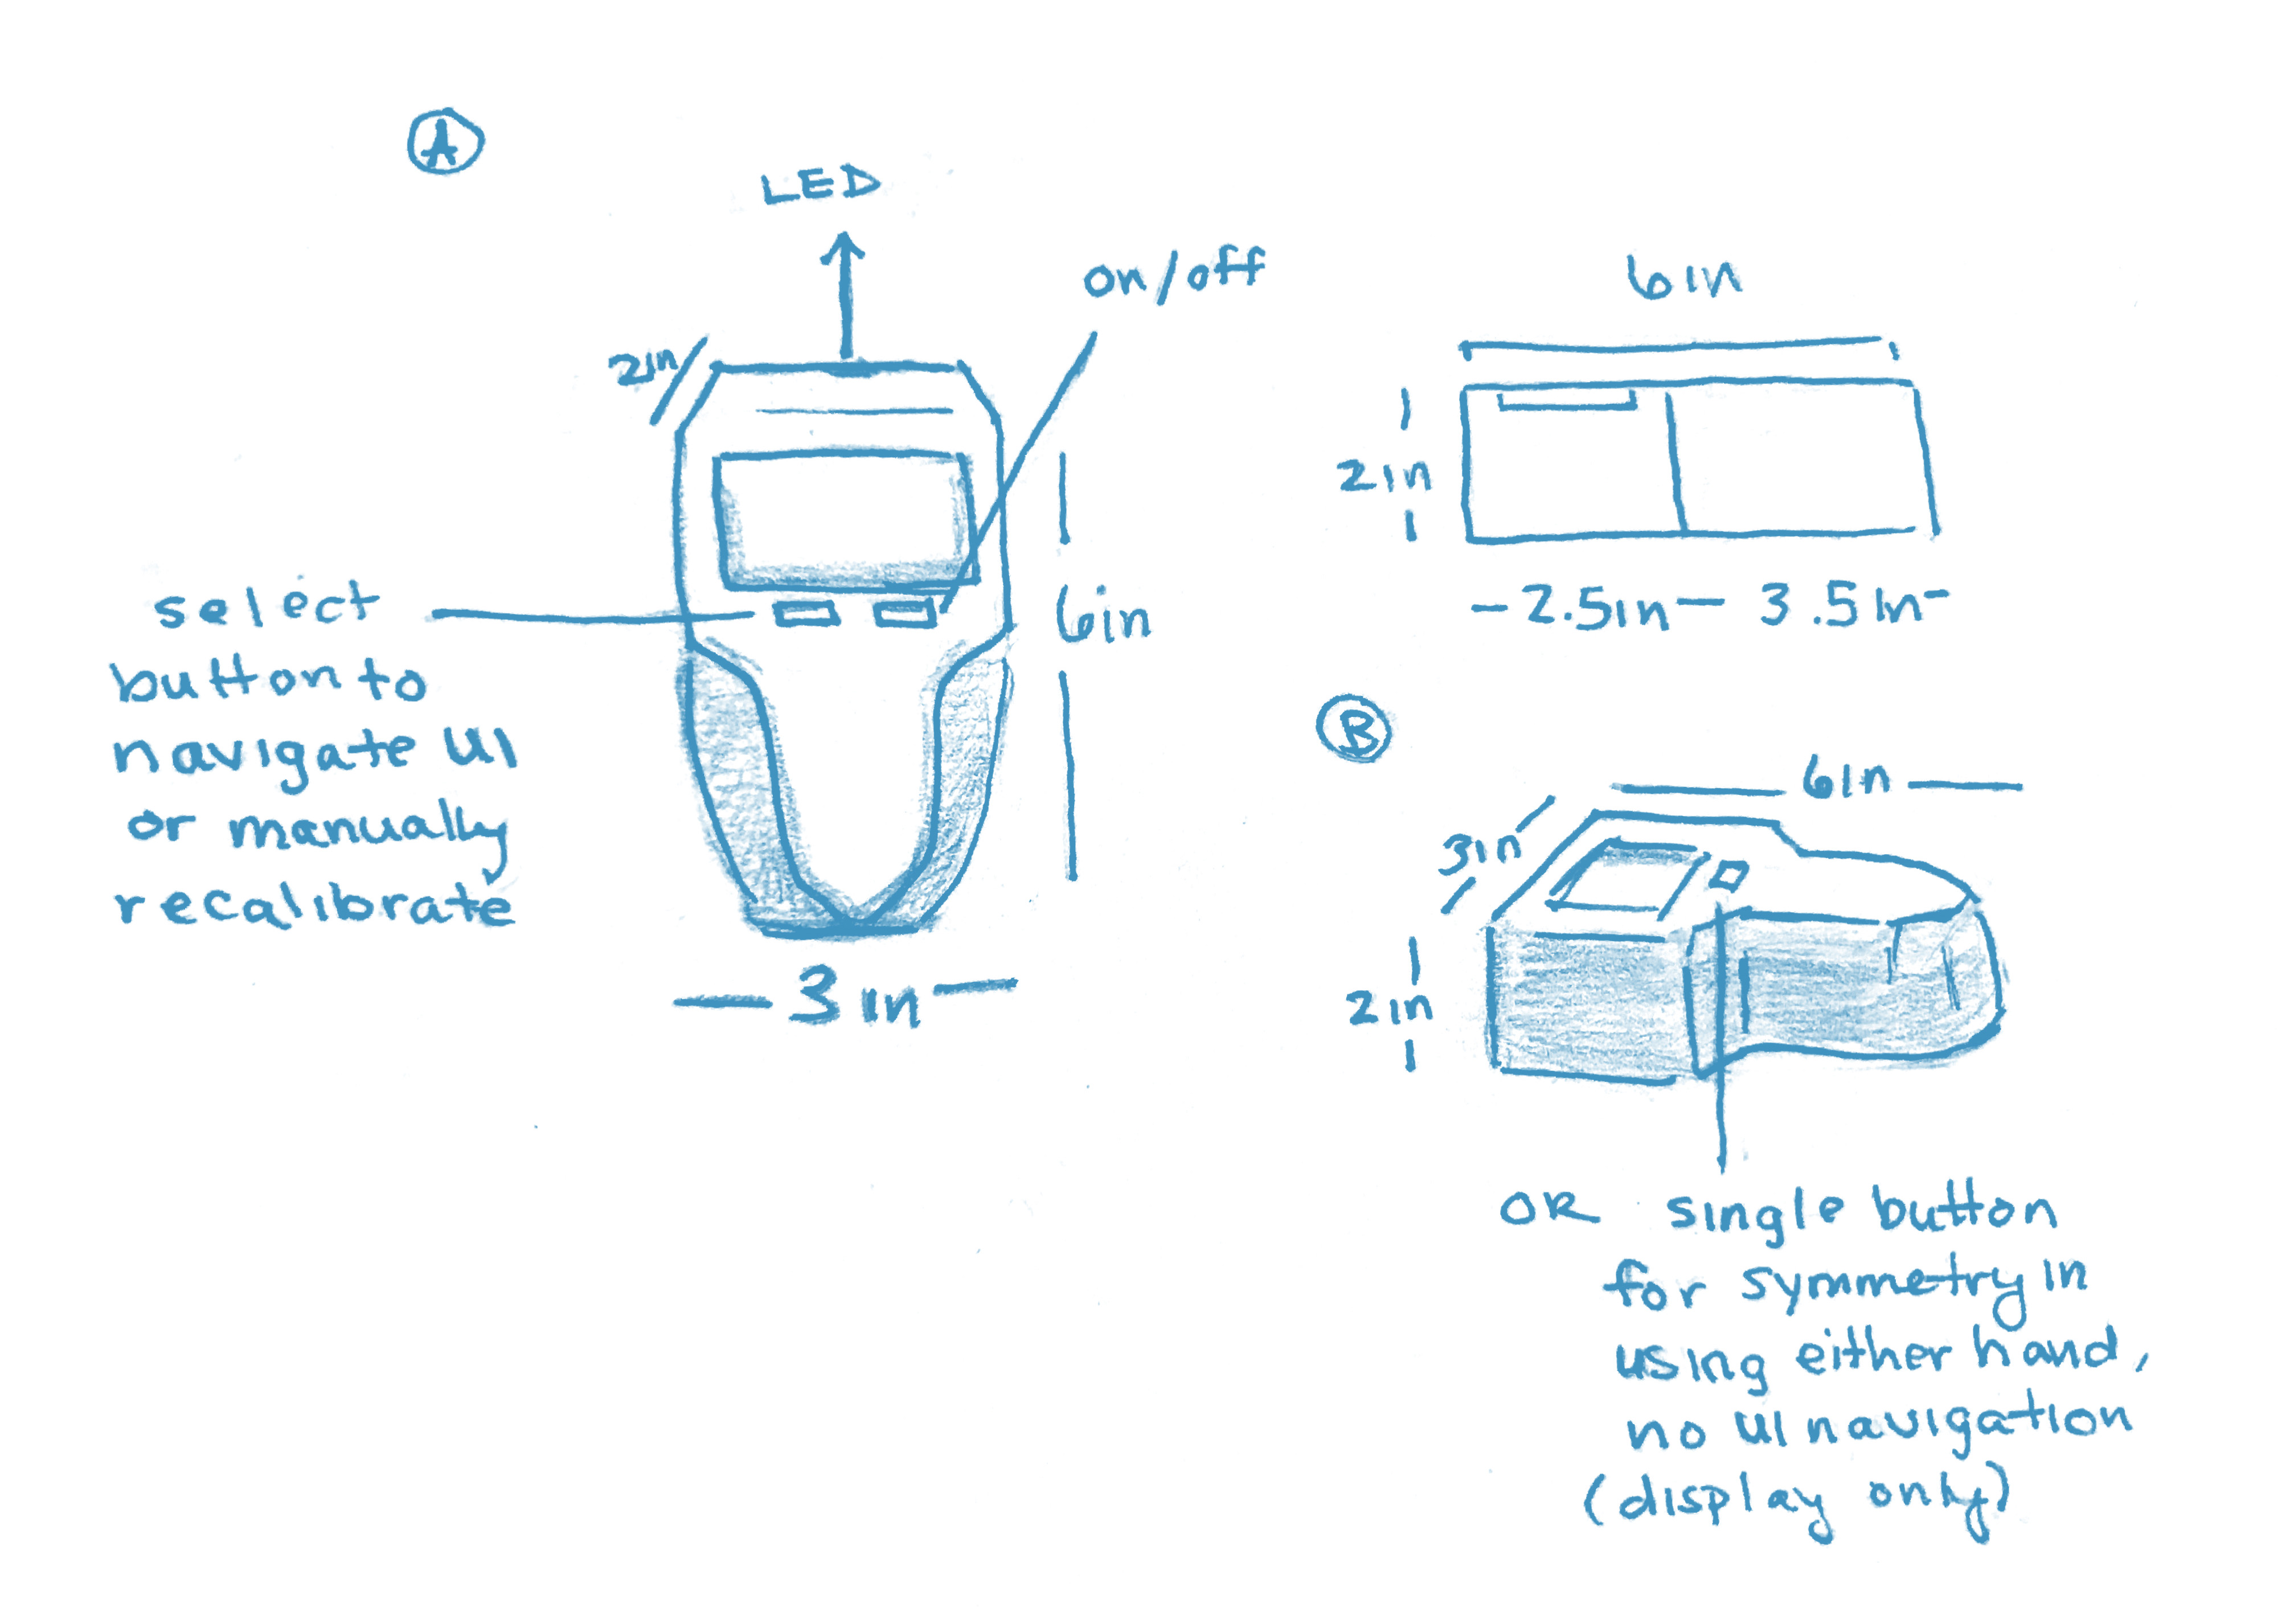 A
LED
on/off
2in
select
button to
navigate UI
or manually
recalibrate
6in
3in
6in
2in
2.5in 3.5in
B
6in
3in
2in
OR single button
for symmetry in
using either hand,
no UI navigation
(display only)